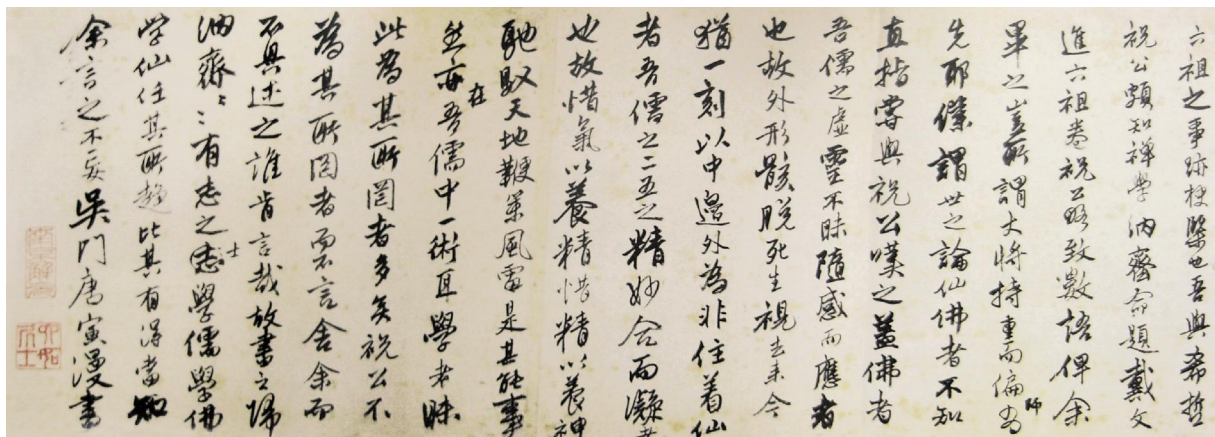 六祖之事跡梗槩也吾與希哲
祝公頗知禪學汭齋命題戴文
進六祖卷祝公略致數語俾余
畢之豈所謂大將持重而偏師為
先耶僕謂世之論仙佛者不知
直指嘗與祝公嘆之蓋佛者
吾儒之虛靈不昧隨感而應者
也故外形骸脱死生視去来今
猶一刻以中邊外為非住着仙
者吾儒之二五之精妙合而凝者
也故惜氣以養精惜精以養神
馳馭天地鞭策風雷是其能事
然亦在吾儒中一術耳學者昧
此為其所罔者多矣祝公不
為其所罔者而不言舍余而
不具述之誰肯言哉故書之歸
汭齋〻有志之士學儒學佛
学仙任其所趨比其有得當知
余言之不妄吳門唐寅漫書
六如居士